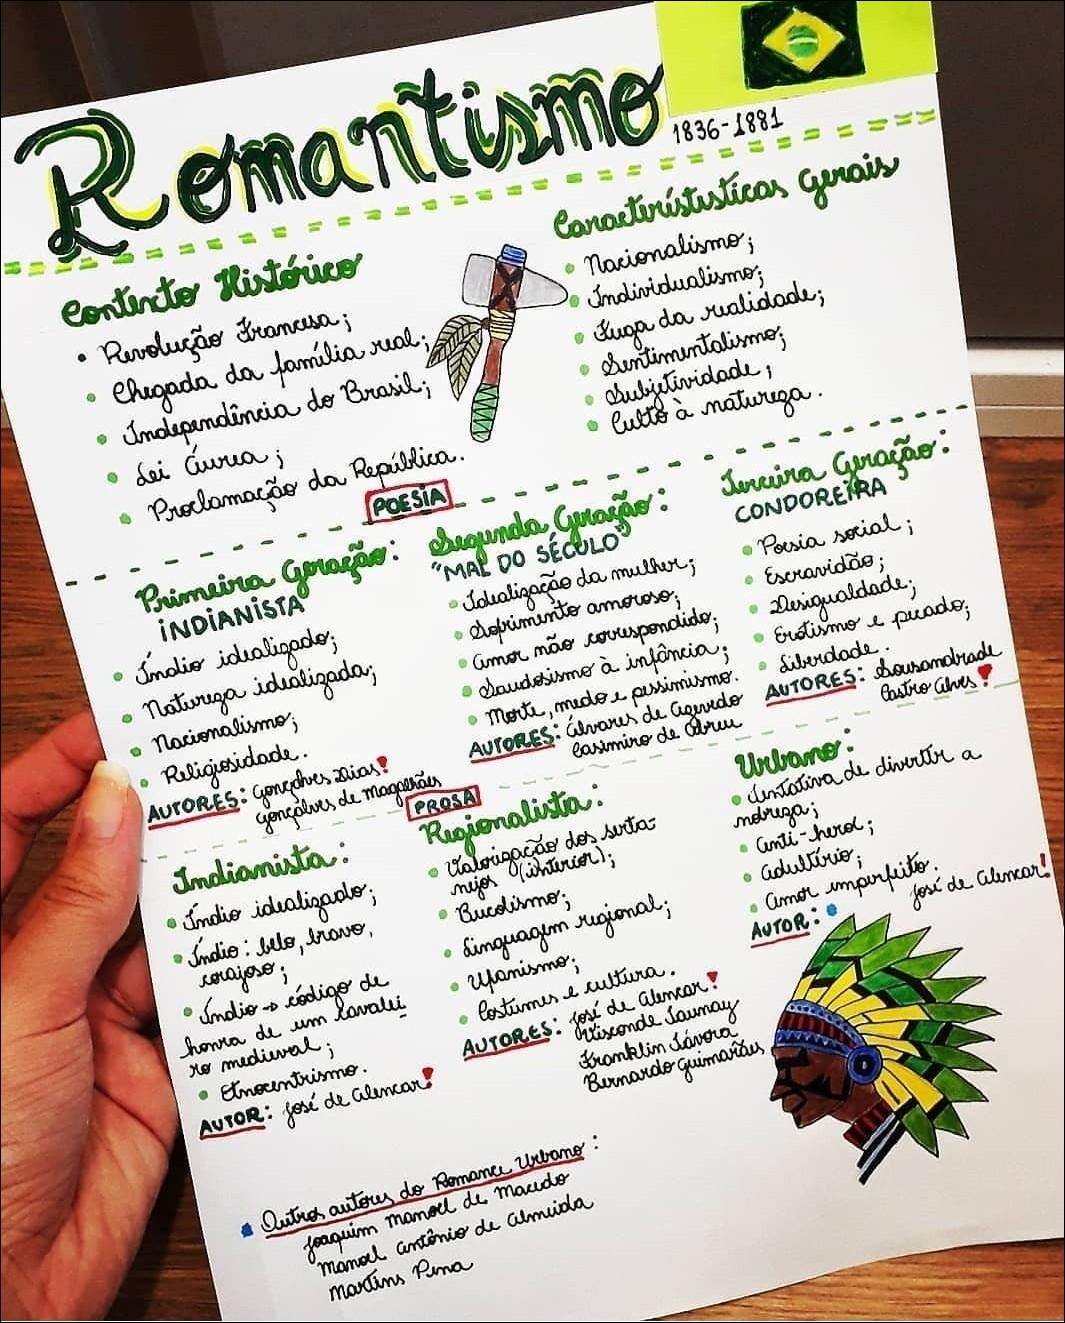 Romantismo
1836-1881
Contexto Histórico
• Revolução Francesa;
• Chegada da família real;
• Independência do Brasil;
• Lei Áurea;
• Proclamação da República.
Característísticas Gerais
• Nacionalismo;
• Individualismo;
• Fuga da realidade;
• Sentimentalismo;
• Subjetividade;
• Culto à natureza.
POESIA
Primeira Geração:
INDIANISTA
• Índio idealizado;
• Natureza idealizada;
• Nacionalismo;
• Religiosidade.
AUTORES: Gonçalves Dias!
Gonçalves de Magalhães
Segunda Geração:
"MAL DO SÉCULO"
• Idealização da mulher;
• Sofrimento amoroso;
• Amor não correspondido;
• Saudosismo à infância;
• Morte, medo e pessimismo.
AUTORES: Álvares de Azevedo
Casimiro de Abreu
Terceira Geração:
CONDOREIRA
• Poesia social;
• Escravidão;
• Desigualdade;
• Erotismo e pecado;
• Liberdade.
AUTORES: Sousandrade
Castro Alves!
PROSA
Indianista:
• Índio idealizado;
• Índio: belo, bravo,
corajoso;
• Índio → código de
honra de um cavalei
ro medieval;
• Etnocentrismo.
AUTOR: José de Alencar!
Regionalista:
• Valorização dos serta-
nejos (interior);
• Bucolismo;
• Linguagem regional;
• Ufanismo;
• Costumes e cultura.
AUTORES: José de Alencar!
Visconde Taunay
Franklin Távora
Bernardo Guimarães
Urbano:
• Tentativa de divertir a
nobreza;
• Anti-heroi;
• Adultério;
• Amor imperfeito.
AUTOR: José de Alencar!
Outros autores do Romance Urbano:
Joaquim Manoel de Macedo
Manoel Antônio de Almeida
Martins Pena